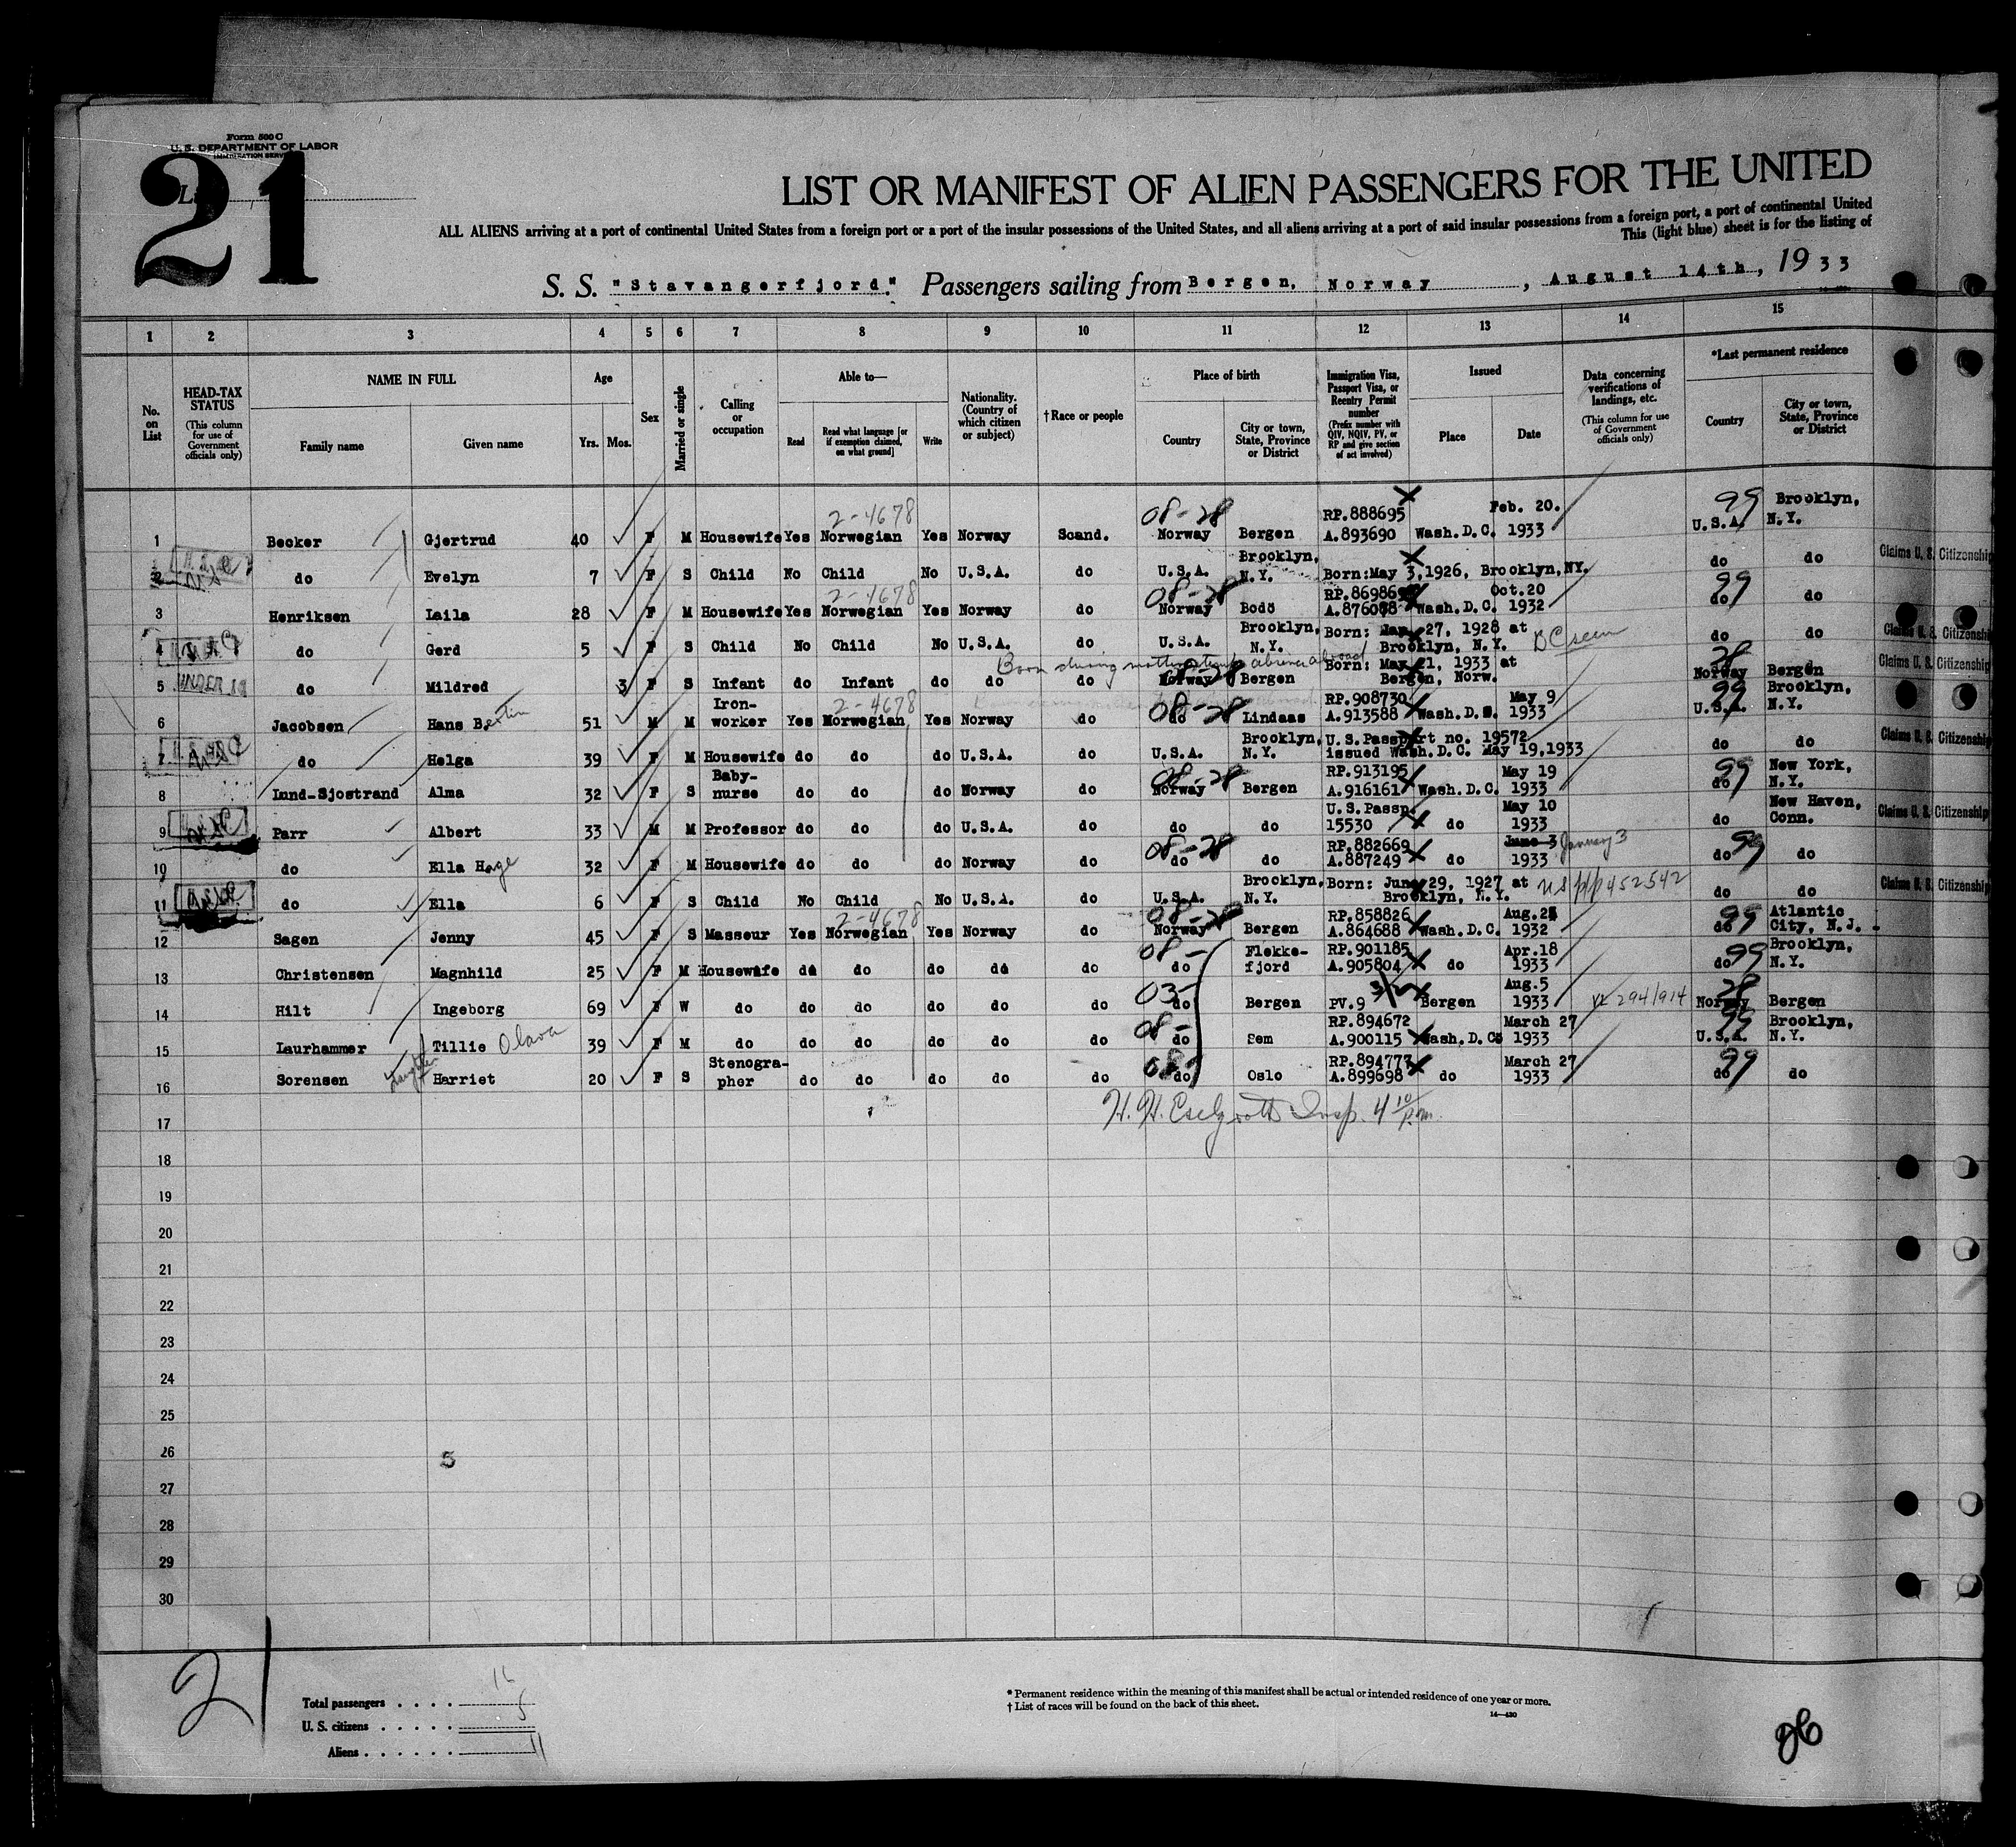 Form 500 C
U. S. DEPARTMENT OF LABOR
IMMIGRATION SERVICE
21
LIST OR MANIFEST OF ALIEN PASSENGERS FOR THE UNITED
ALL ALIENS arriving at a port of continental United States from a foreign port or a port of the insular possessions of the United States, and all aliens arriving at a port of said insular possessions from a foreign port, a port of continental United
This (light blue) sheet is for the listing of
S. S. "Stavangerfjord." Passengers sailing from Bergen, Norway, August 14th, 1933
1 2 3 4 5 6 7 8 9 10 11 12 13 14 15
No. on List
HEAD-TAX STATUS (This column for use of Government officials only)
NAME IN FULL Family name Given name
Age Yrs. Mos.
Sex
Married or single
Calling or occupation
Able to— Read Read what language [or if exemption claimed, on what ground] Write
Nationality. (Country of which citizen or subject)
† Race or people
Place of birth Country City or town, State, Province or District
Immigration Visa, Passport Visa, or Reentry Permit number (Prefix number with QIV, NQIV, PV, or RP and give section of act involved)
Issued Place Date
Data concerning verifications of landings, etc. (This column for use of Government officials only)
*Last permanent residence Country City or town, State, Province or District
1 Becker Gjertrud 40 F M Housewife Yes Norwegian 2-4678 Yes Norway Scand. 08-28 Norway Bergen RP.888695 A.893690 Wash.D.C. Feb. 20. 1933 99 U.S.A. Brooklyn, N.Y.
2 do Evelyn 7 F S Child No Child No U.S.A. do U.S.A. Brooklyn, N.Y. Born:May 3,1926, Brooklyn,NY. do do Claims U. S. Citizenship
3 Henriksen Laila 28 F M Housewife Yes Norwegian 2-4678 Yes Norway do 08-28 Norway Bodö A.876088 Wash.D.C. Oct.20 1932 99 do do
4 do Gerd 5 F S Child No Child No U.S.A. do U.S.A. Brooklyn, N.Y. Born: 27, 1928 at Brooklyn, N.Y. BC seen do do Claims U. S. Citizenship
Born during mother's temp absence abroad
5 UNDER do Mildred 3 F S Infant do Infant do do do 08-28 Norway Bergen Born: May 21, 1933 at Bergen, Norw. 28 Norway Bergen Claims U. S. Citizenship
6 Jacobsen Hans Bertin 51 M M Iron-worker Yes Norwegian 2-4678 Yes Norway do 08-28 do Lindaas RP.908730 A.913588 Wash.D.C. May 9 1933 99 U.S.A. Brooklyn, N.Y.
7 do Helga 39 F M Housewife do do do U.S.A. do U.S.A. Brooklyn, N.Y. U.S.Passport no. 19572 issued Wash.D.C. May 19,1933 do do Claims U. S. Citizenship
8 Lund-Sjostrand Alma 32 F S Baby-nurse do do do Norway do 08-28 Norway Bergen RP.913195 A.916161 Wash.D.C. May 19 1933 99 do New York, N.Y.
9 Parr Albert 33 M M Professor do do do U.S.A. do do do U.S.Passp. 15530 do May 10 1933 do New Haven, Conn. Claims U. S. Citizenship
10 do Ella Hage 32 F M Housewife do do do Norway do 08-28 do do RP.882669 A.887249 do June 3 January 3 1933 99 do do
11 do Ella 6 F S Child No Child No U.S.A. do U.S.A. Brooklyn, N.Y. Born: June 29, 1927 at Brooklyn, N.Y. US pp 452542 do do Claims U. S. Citizenship
12 Sagen Jenny 45 F S Masseur Yes Norwegian 2-4678 Yes Norway do 08-28 Norway Bergen RP.858826 A.864688 Wash.D.C. 1932 99 do Atlantic City, N.J.
13 Christensen Magnhild 25 F M Housewife do do do do do 08- do Flekke-fjord RP.901185 A.905804 do Apr.18 1933 99 do Brooklyn, N.Y.
14 Hilt Ingeborg 69 F W do do do do do do 03- do Bergen PV.9 3/2 Bergen Aug.5 1933 294/914 28 Norway Bergen
15 Laurhammer Tillie Olava 39 F M do do do do do do 08- do Sem RP.894672 A.900115 Wash.D.C. March 27 1933 99 U.S.A. Brooklyn, N.Y.
16 Sorensen Harriet 20 F S Stenogra-pher do do do do do 08- do Oslo RP.894777 A.899698 do March 27 1933 99 do do
17 H. H. Insp. 4 10 p.m.
18
19
20
21
22
23
24
25
26
27
28
29
30
21
Total passengers . . . . 16
U. S. citizens . . . . . 5
Aliens . . . . . . 11
* Permanent residence within the meaning of this manifest shall be actual or intended residence of one year or more.
† List of races will be found on the back of this sheet.
14—430